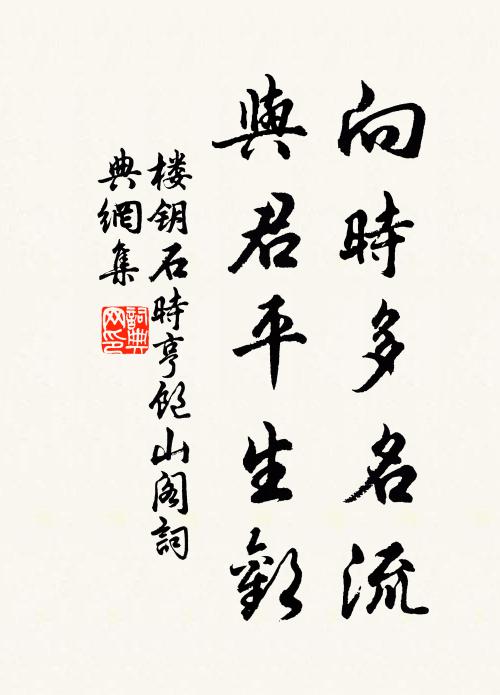 向時多名流
與君平生歡
楼钥石時亨飽山阁詞
典網集
詞典
网印